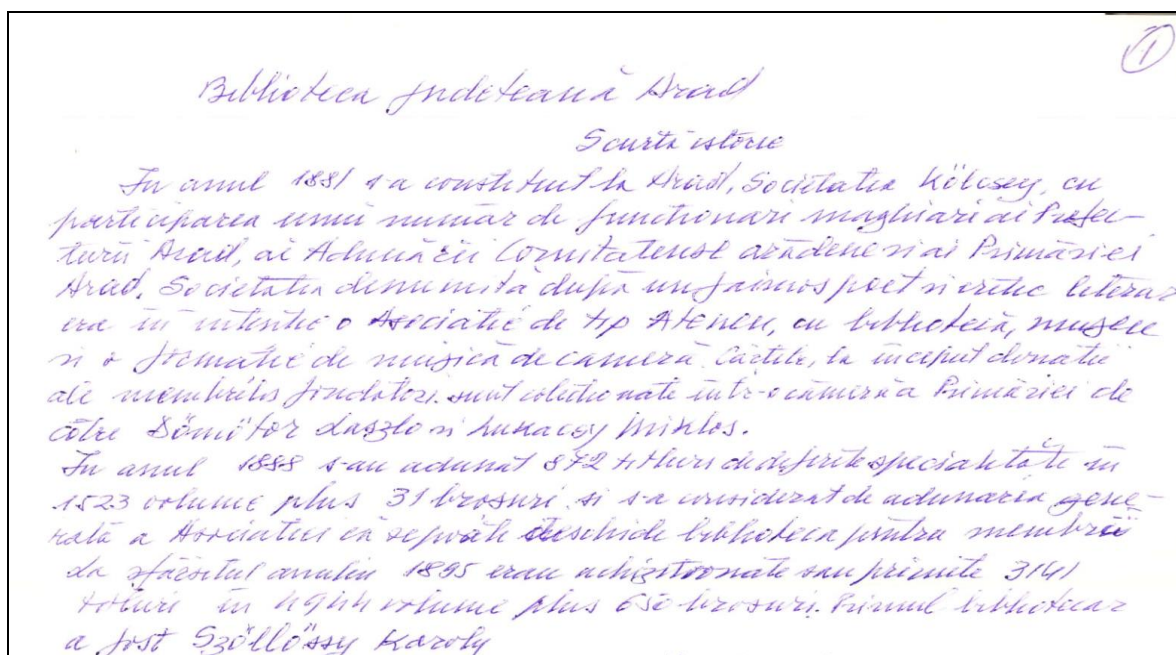 1
Biblioteca Județeană Arad
Scurtă istorie
In anul 1881 s-a constituit la Arad, Societatea Kölcsey, cu
participarea unui număr de functionari maghiari ai Prefec-
turii Arad, ai Adunării Comitatense arădene si ai Primăriei
Arad. Societatea denumită după un faimos poet si critic literar
era în intentie o Asociatie de tip Ateneu, cu bibliotecă, muzeu
si o formatie de muzică de cameră. Cărtile, la început donatii
ale membrilor fondatori. sunt colectionate într-o cameră a Primăriei de
către Dömötör Laszlo si Lukacsy Miklos.
In anul 1888 s-au adunat 872 titluri de diferite specialităti în
1523 volume plus 31 brosuri. si s-a considerat de adunarea gene-
rală a Asociatiei că se poate deschide biblioteca pentru membrii
La sfârsitul anului 1895 erau achizitionate sau primite 3141
titluri în 4944 volume plus 650 brosuri. Primul bibliotecar
a fost Szöllössy Karoly